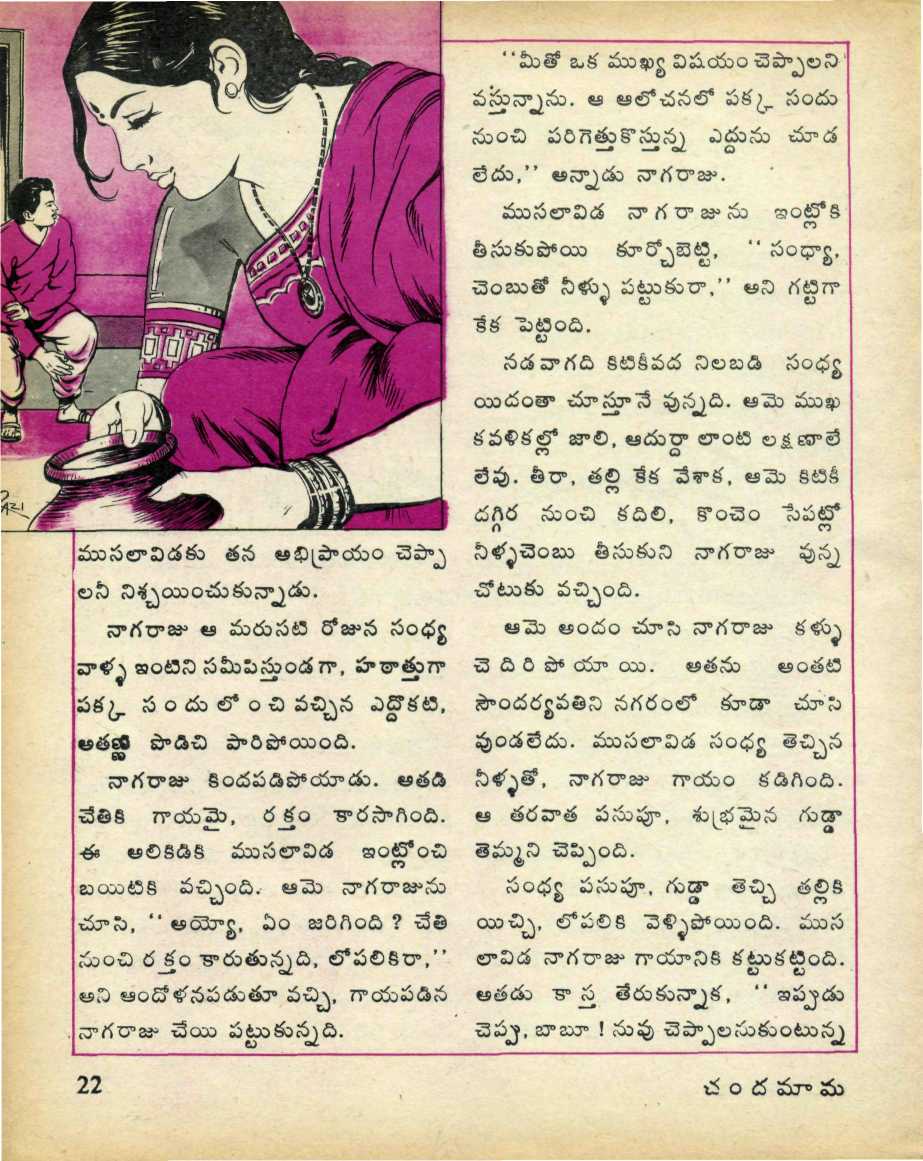 ముసలావిడకు తన అభిప్రాయం చెప్పా
లనీ నిశ్చయించుకున్నాడు.
నాగరాజు ఆ మరుసటి రోజున సంధ్య
వాళ్ళ ఇంటిని సమీపిస్తుండగా, హఠాత్తుగా
పక్క సందులోంచి వచ్చిన ఎద్దొకటి,
అతణ్ణి పొడిచి పారిపోయింది.
నాగరాజు కిందపడిపోయాడు. అతడి
చేతికి గాయమై, రక్తం కారసాగింది.
ఈ అలికిడికి ముసలావిడ ఇంట్లోంచి
బయిటికి వచ్చింది. ఆమె నాగరాజును
చూసి, ‘‘అయ్యో, ఏం జరిగింది? చేతి
నుంచి రక్తం కారుతున్నది, లోపలికిరా,’’
అని ఆందోళనపడుతూ వచ్చి, గాయపడిన
నాగరాజు చేయి పట్టుకున్నది.
‘‘మీతో ఒక ముఖ్య విషయం చెప్పాలని
వస్తున్నాను. ఆ ఆలోచనలో పక్క సందు
నుంచి పరిగెత్తుకొస్తున్న ఎద్దును చూడ
లేదు,’’ అన్నాడు నాగరాజు.
ముసలావిడ నాగరాజును ఇంట్లోకి
తీసుకుపోయి కూర్చోబెట్టి, ‘‘సంధ్యా,
చెంబుతో నీళ్ళు పట్టుకురా,’’ అని గట్టిగా
కేక పెట్టింది.
నడవాగది కిటికీవద నిలబడి సంధ్య
యిదంతా చూస్తూనే వున్నది. ఆమె ముఖ
కవళికల్లో జాలి, ఆదుర్దా లాంటి లక్షణాలే
లేవు. తీరా, తల్లి కేక వేశాక, ఆమె కిటికీ
దగ్గిర నుంచి కదిలి, కొంచెం సేపట్లో
నీళ్ళచెంబు తీసుకుని నాగరాజు వున్న
చోటుకు వచ్చింది.
ఆమె అందం చూసి నాగరాజు కళ్ళు
చెదిరిపోయాయి. అతను అంతటి
సౌందర్యవతిని నగరంలో కూడా చూసి
వుండలేదు. ముసలావిడ సంధ్య తెచ్చిన
నీళ్ళతో, నాగరాజు గాయం కడిగింది.
ఆ తరవాత పసుపూ, శుభ్రమైన గుడ్డా
తెమ్మని చెప్పింది.
సంధ్య పసుపూ, గుడ్డా తెచ్చి తల్లికి
యిచ్చి, లోపలికి వెళ్ళిపోయింది. ముస
లావిడ నాగరాజు గాయానికి కట్టుకట్టింది.
అతడు కాస్త తేరుకున్నాక, ‘‘ఇప్పుడు
చెప్పు, బాబూ! నువు చెప్పాలసుకుంటున్న
22
చందమామ